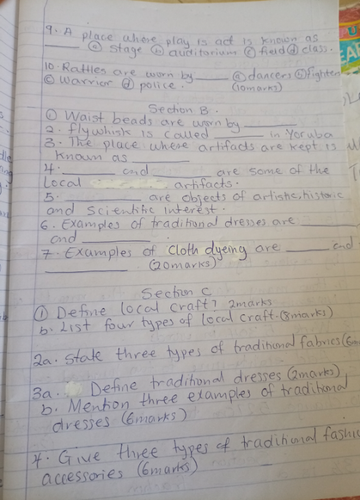 9. A place where play is act is known as
____ ⓐ stage ⓑ auditarium ⓒ field ⓓ class.
10 Rattles are worn by ____ ⓐ dancers ⓑ fighters
ⓒ warrior ⓓ police. (10marks)
Section B.
① Waist beads are worn by ____
2. Flywhisk is called ____ in Yoruba
3. The place where artifacts are kept is
known as ____
4. ____ and ____ are some of the
local artifacts.
5. ____ are objects of artistic, historic
and scientific interest.
6. Examples of traditional dresses are ____
and ____
7. Examples of cloth dyeing are ____ and
____ (20marks)
Section C
① Define local craft? 2marks
b. List four types of local craft. (8marks)
2a. State three types of traditional fabrics
3a. Define traditional dresses (2marks)
b. Mention three examples of traditional
dresses (6marks)
4. Give three types of traditional fashion
accessories (6marks)